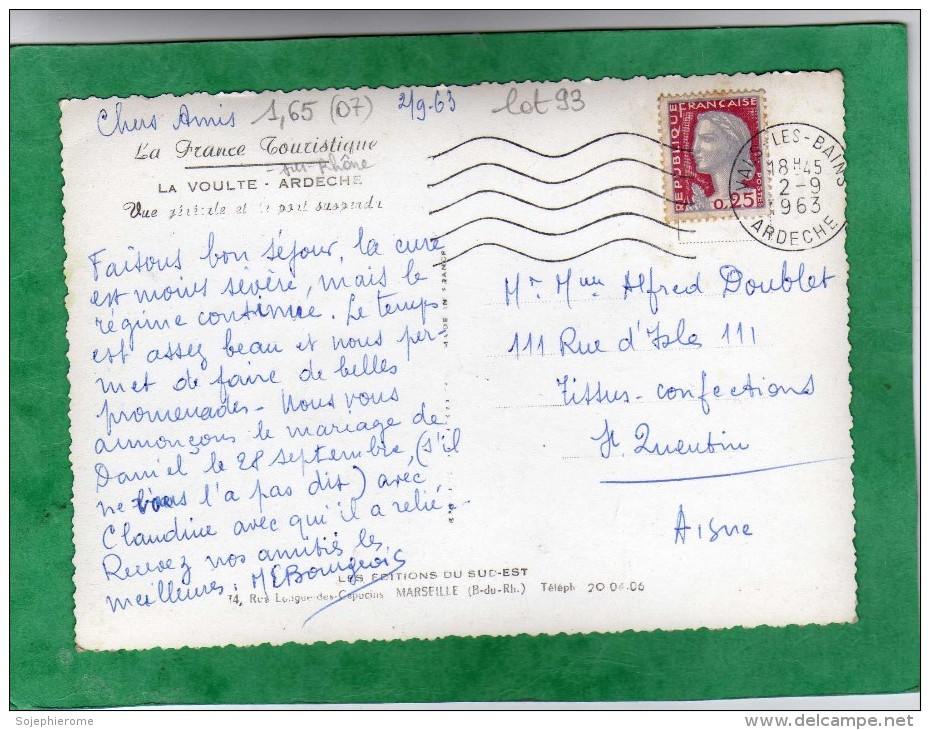 Chers Amis 1,65 (07) 2/9-63 lot 93
La France Touristique
-sur-Rhône
LA VOULTE - ARDECHE
Vue générale et le pont suspendu
Faisons bon séjour, la cure
est moins sévère, mais le
régime continue. Le temps
est assez beau et nous per-
met de faire de belles
promenades - Nous vous
annonçons le mariage de
Daniel le 28 septembre, (s'il
ne vous l'a pas dit) avec
Claudine avec qui il a relié.
Recevez nos amitiés les
meilleures. MEBourgeois
LES EDITIONS DU SUD-EST
74, Rue Longue-des-Capucins MARSEILLE (B-du-Rh.) Téléph 20 04.06
MADE IN FRANCE
REPUBLIQUE FRANÇAISE
POSTES
0,25
VALS-LES-BAINS
18H45
2-9
963
ARDECHE
Mr Mme Alfred Doublet
111 Rue d'Isle 111
Tissus-confections
St Quentin
Aisne
Sojephierome
www.delcampe.net